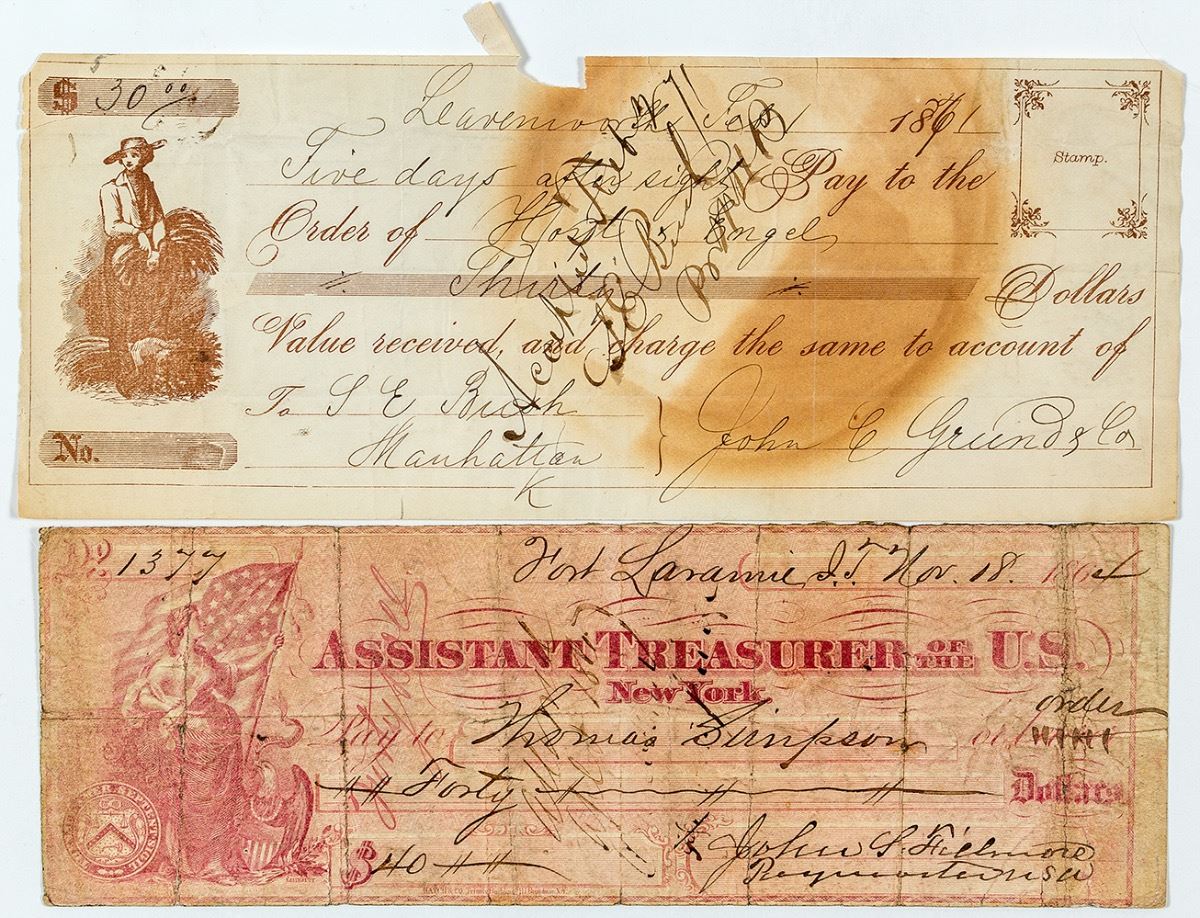 $ 30 00/
Leavenworth Feb 1 1871
Five days after sight Pay to the
Stamp.
Order of Host & Engel
Thirty Dollars
Value received, and charge the same to account of
To S E Bush
Manhattan
K
John C Grund & Co
No.
Accepted Feb 4 71
S E Bush
No 1377
Fort Laramie, I.T. Nov. 18. 1864
ASSISTANT TREASURER OF THE U.S.
New York.
Pay to Thomas Simpson or order
Forty Dollars
$40
John S. Fillmore
Paymaster USA